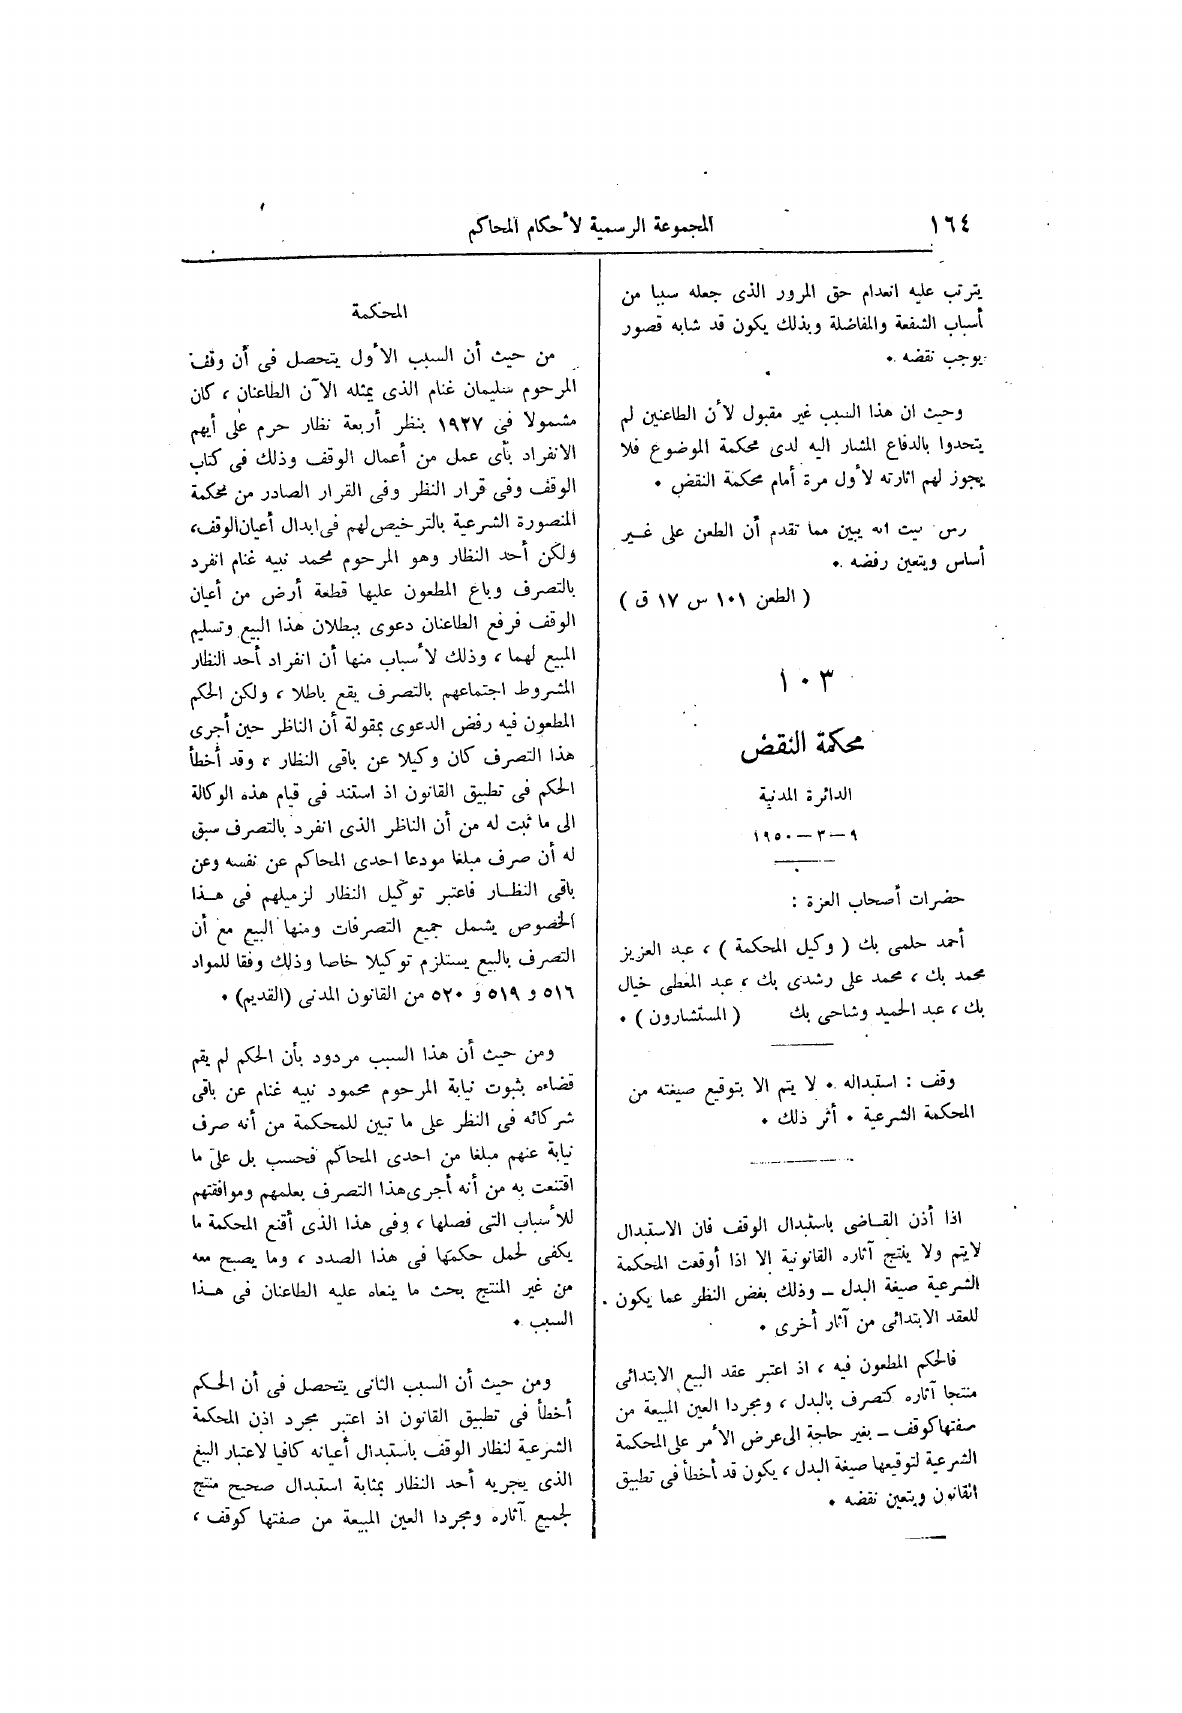 ١٦٤
المجموعة الرسمية لأحكام المحاكم
يترتب عليه انعدام حق المرور الذى جعله سببا من
أسباب الشفعة والمفاضلة وبذلك يكون قد شابه قصور
يوجب نقضه .
وحيث ان هذا السبب غير مقبول لأن الطاعنين لم
يتحدوا بالدفاع المشار اليه لدى محكمة الموضوع فلا
يجوز لهم اثارته لأول مرة أمام محكمة النقض .
يبين مما تقدم أن الطعن على غير
أساس ويتعين رفضه .
( الطعن ١٠١ س ١٧ ق )
١٠٣
محكمة النقض
الدائرة المدنية
٩ – ٣ – ١٩٥٠
حضرات أصحاب العزة :
أحمد حلمى بك ( وكيل المحكمة ) ، عبد العزيز
محمد بك ، محمد على رشدى بك ، عبد المعطى خيال
بك ، عبد الحميد وشاحى بك ( المستشارون ) .
وقف : استبداله . لا يتم الا بتوقيع صيغته من
المحكمة الشرعية . أثر ذلك .
اذا أذن القاضى باستبدال الوقف فان الاستبدال
لايتم ولا ينتج آثاره القانونية إلا اذا أوقعت المحكمة
الشرعية صيغة البدل – وذلك بغض النظر عما يكون
للعقد الابتدائى من آثار أخرى .
فالحكم المطعون فيه ، اذ اعتبر عقد البيع الابتدائى
منتجا آثاره كتصرف بالبدل ، ومجردا العين المبيعة من
صفتها كوقف – بغير حاجة الى عرض الأمر على المحكمة
الشرعية لتوقيعها صيغة البدل ، يكون قد أخطأ فى تطبيق
القانون ويتعين نقضه .
المحكمة
من حيث أن السبب الأول يتحصل فى أن وقف
المرحوم سليمان غنام الذى يمثله الآن الطاعنان ، كان
مشمولا فى ١٩٢٧ بنظر أربعة نظار حرم على أيهم
الانفراد بأى عمل من أعمال الوقف وذلك فى كتاب
الوقف وفى قرار النظر وفى القرار الصادر من محكمة
المنصورة الشرعية بالترخيص لهم فى ابدال أعيان الوقف،
ولكن أحد النظار وهو المرحوم محمد نبيه غنام انفرد
بالتصرف وباع المطعون عليها قطعة أرض من أعيان
الوقف فرفع الطاعنان دعوى ببطلان هذا البيع وتسليم
المبيع لهما ، وذلك لأسباب منها أن انفراد أحد النظار
المشروط اجتماعهم بالتصرف يقع باطلا ، ولكن الحكم
المطعون فيه رفض الدعوى بمقولة أن الناظر حين أجرى
هذا التصرف كان وكيلا عن باقى النظار ، وقد أخطأ
الحكم فى تطبيق القانون اذ استند فى قيام هذه الوكالة
الى ما ثبت له من أن الناظر الذى انفرد بالتصرف سبق
له أن صرف مبلغا مودعا احدى المحاكم عن نفسه وعن
باقى النظار فاعتبر توكيل النظار لزميلهم فى هذا
الخصوص يشمل جميع التصرفات ومنها البيع مع أن
التصرف بالبيع يستلزم توكيلا خاصا وذلك وفقا للمواد
٥١٦ و ٥١٩ و ٥٢٠ من القانون المدنى (القديم) .
ومن حيث أن هذا السبب مردود بأن الحكم لم يقم
قضاءه بثبوت نيابة المرحوم محمود نبيه غنام عن باقى
شركائه فى النظر على ما تبين للمحكمة من أنه صرف
نيابة عنهم مبلغا من احدى المحاكم فحسب بل على ما
اقتنعت به من أنه أجرى هذا التصرف بعلمهم وموافقتهم
للأسباب التى فصلها ، وفى هذا الذى أقنع المحكمة ما
يكفى لحمل حكمها فى هذا الصدد ، وما يصبح معه
من غير المنتج بحث ما ينعاه عليه الطاعنان فى هذا
السبب .
ومن حيث أن السبب الثانى يتحصل فى أن الحكم
أخطأ فى تطبيق القانون اذ اعتبر مجرد اذن المحكمة
الشرعية لنظار الوقف باستبدال أعيانه كافيا لاعتبار البيع
الذى يجريه أحد النظار بمثابة استبدال صحيح منتج
لجميع آثاره ومجردا العين المبيعة من صفتها كوقف ،